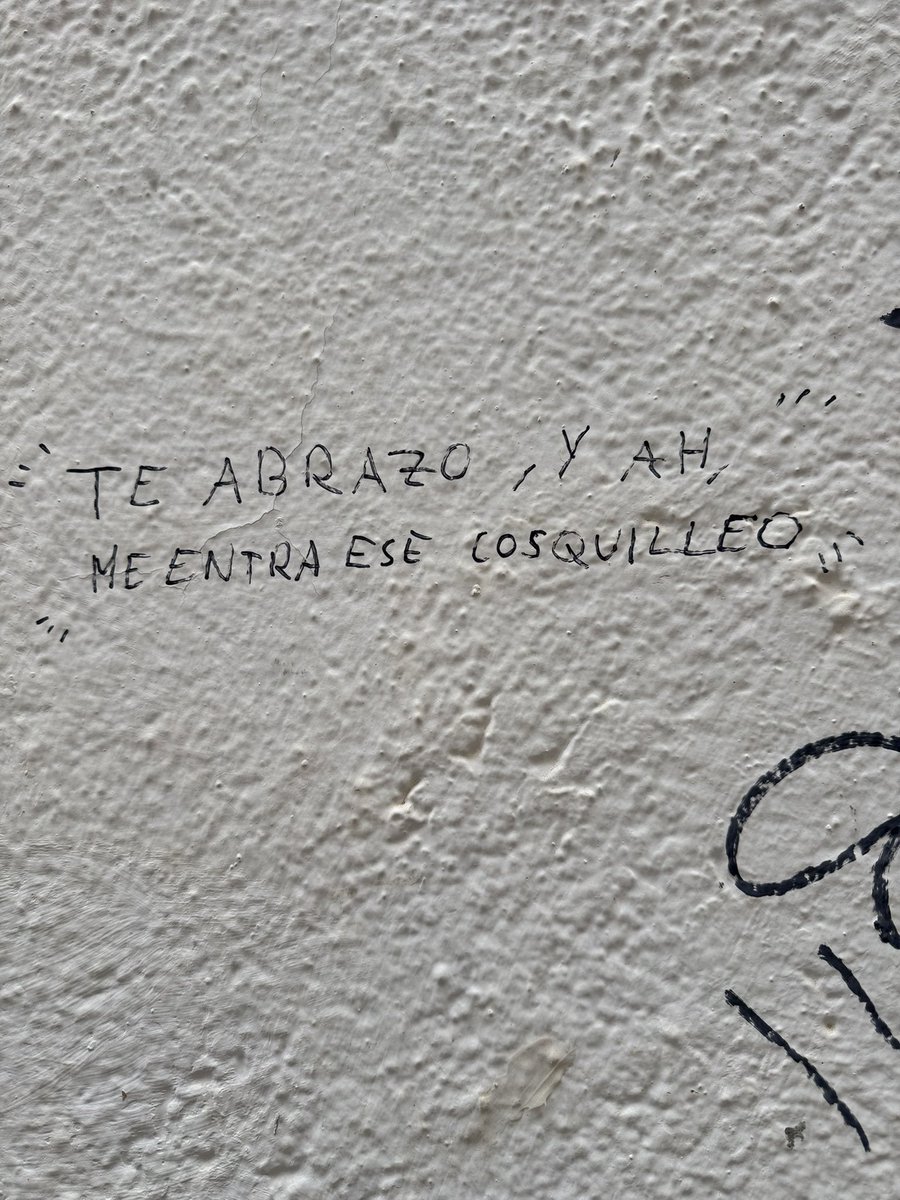 TE ABRAZO , Y AH,
ME ENTRA ESE COSQUILLEO